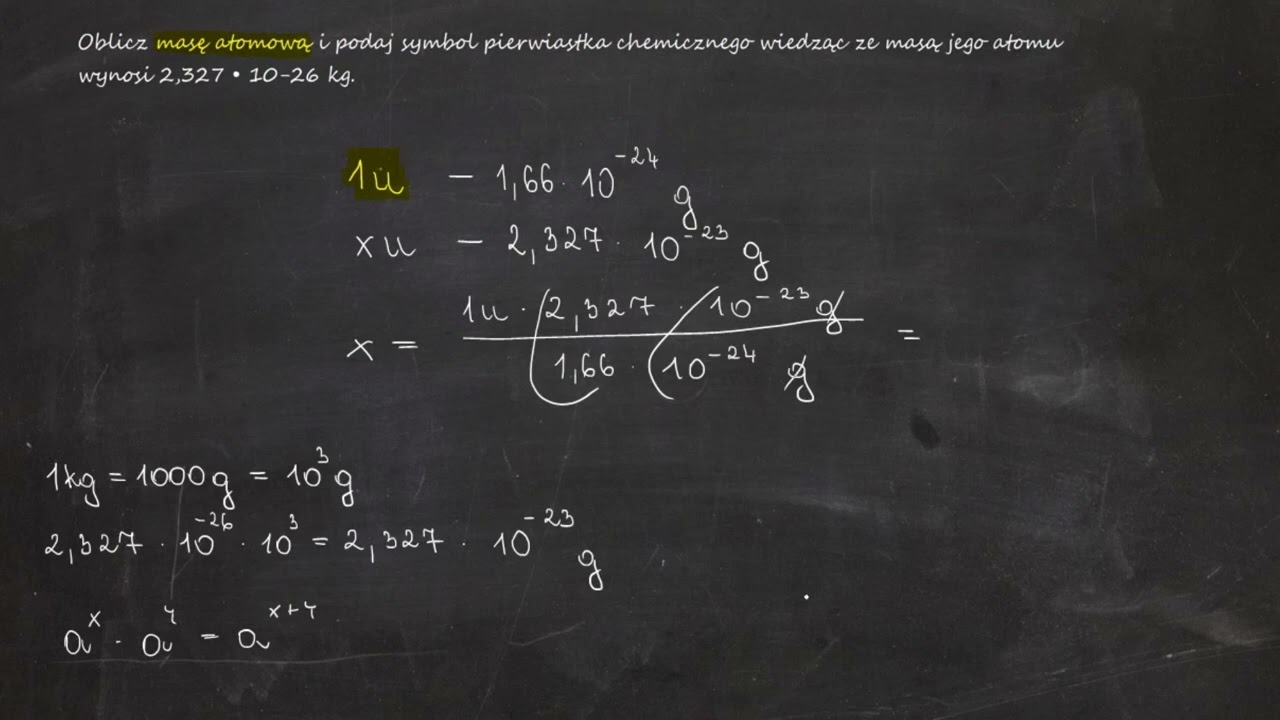 Oblicz masę atomową i podaj symbol pierwiastka chemicznego wiedząc ze masą jego atomu
wynosi 2,327 • 10-26 kg.
1u - 1,66 · 10^-24 g
xu - 2,327 · 10^-23 g
x = 1u · 2,327 · 10^-23 g / 1,66 · 10^-24 g =
1kg = 1000g = 10^3 g
2,327 · 10^-26 · 10^3 = 2,327 · 10^-23 g
a^x · a^y = a^x+y